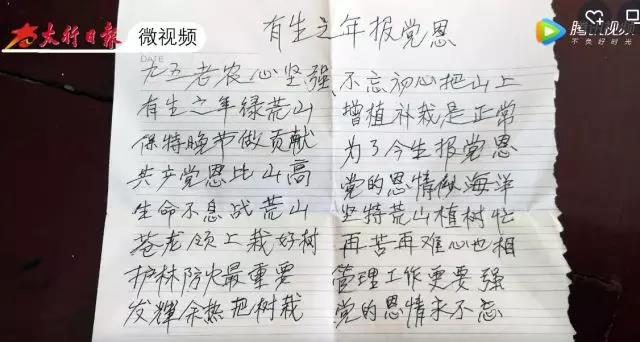 太行日报 微视频
腾讯视频
不负好时光
有生之年报党恩
DATE
九五老农心坚强、不忘初心把山上
有生之年绿荒山 增植补栽是正常
保持晚节做贡献 为了今生报党恩
共产党恩比山高 党的恩情似海洋
生命不息战荒山 坚持荒山植树忙
苍龙领上栽好树 再苦再难心也相
护林防火最重要 管理工作更要强
发辉余热把树栽 党的恩情未不忘